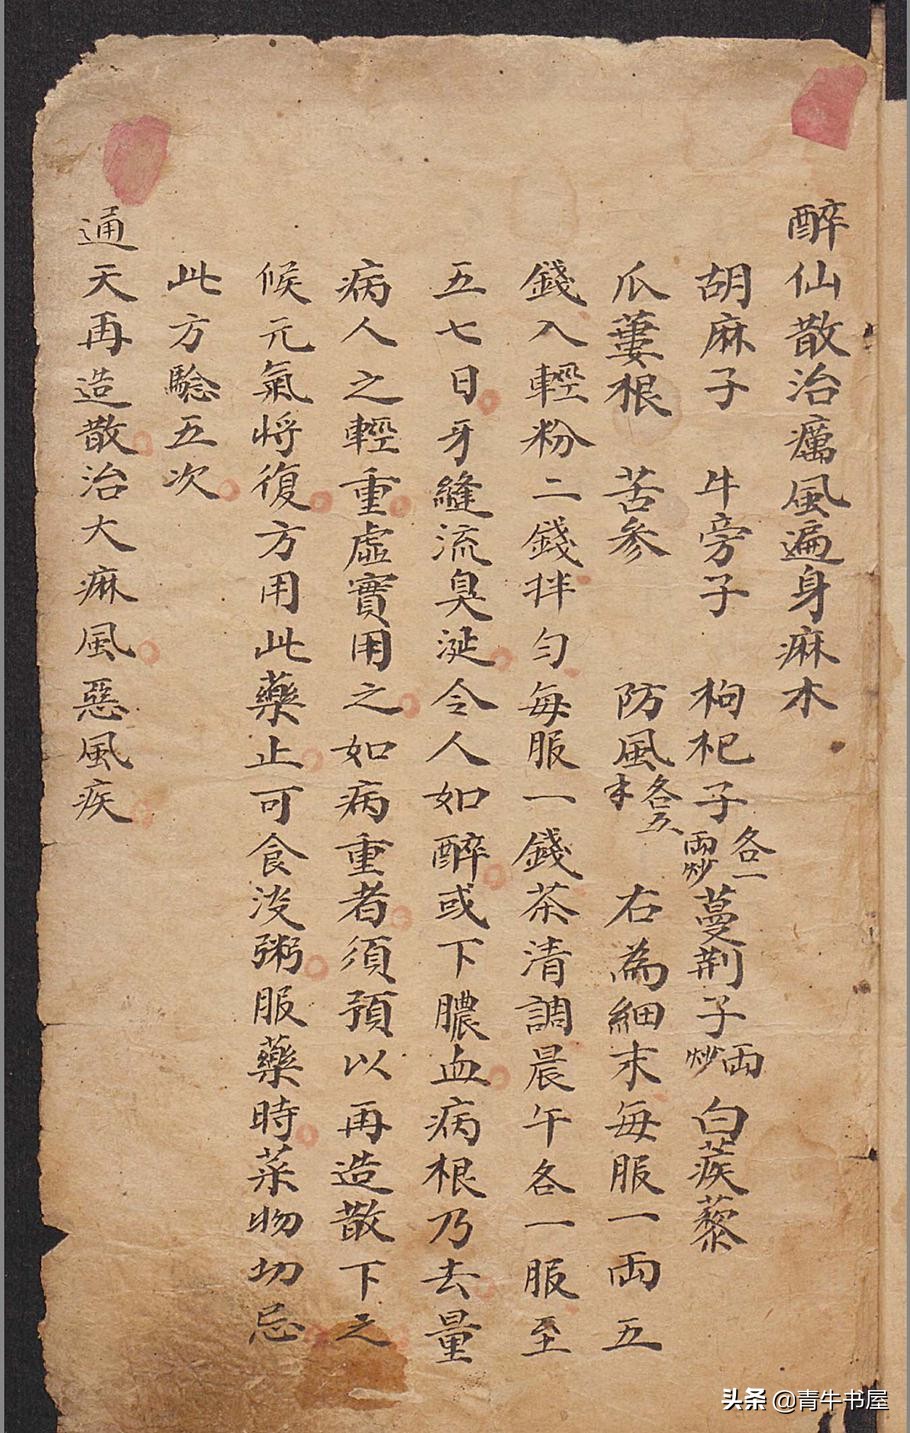 醉仙散治癘風遍身麻木
胡麻子　牛旁子　枸杞子各一兩炒蔓荆子兩炒　白蒺藜
瓜蔞根　苦参　防風各五　右為細末每服一兩五
錢入輕粉二錢拌勻每服一錢茶清調晨午各一服至
五七日牙縫流臭涎令人如醉或下膿血病根乃去量
病人之輕重虛實用之如病重者須預以再造散下之
候元氣将復方用此藥止可食淡粥服藥時菜物切忌
此方騐五次
通天再造散治大痳風惡風疾
头条 @青牛书屋